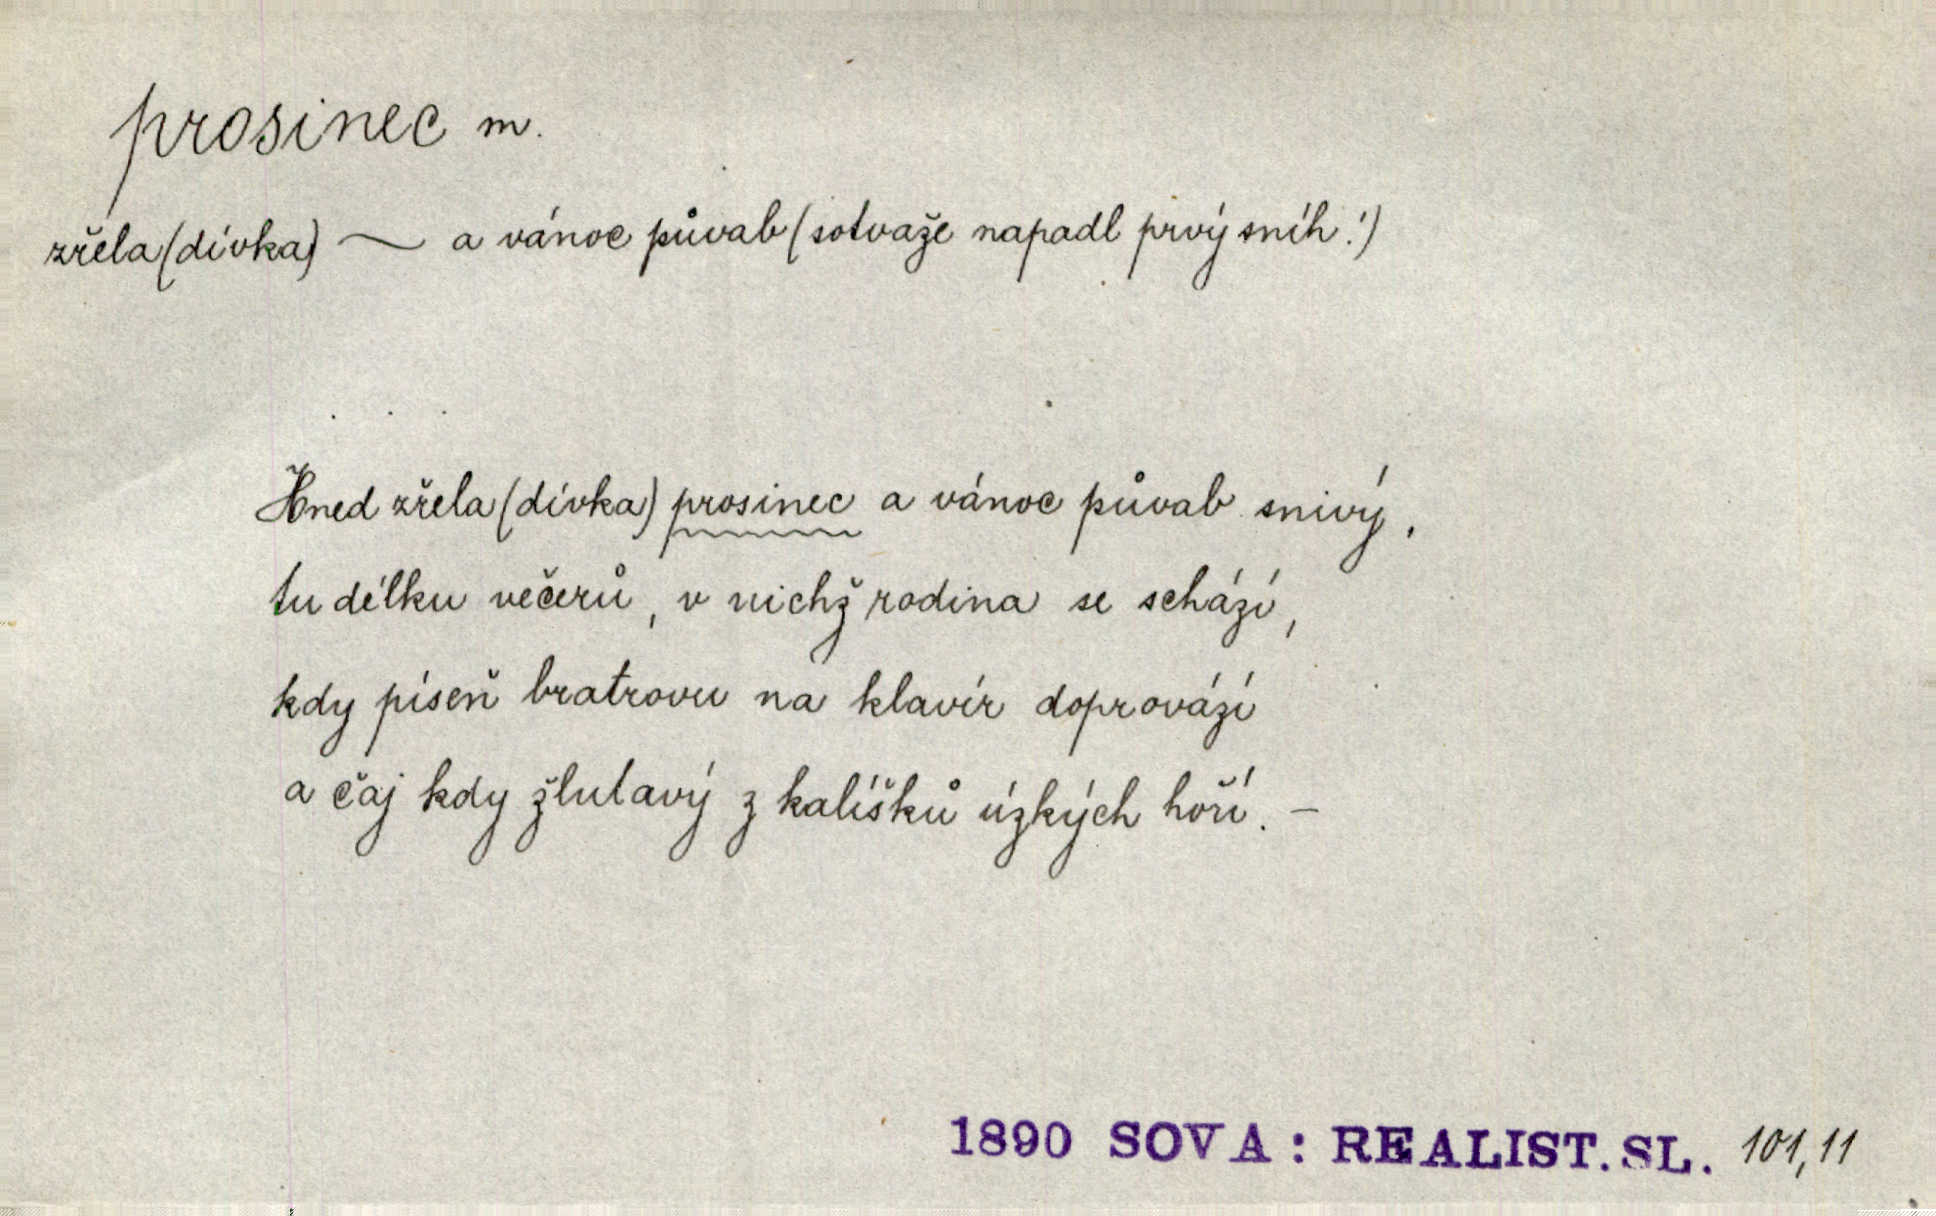 prosinec m.
zřela (dívka) ~ a vánoc půvab (sotvaže napadl prvý sníh!)
. . .
Hned zřela (dívka) prosinec a vánoc půvab snivý,
tu délku večerů, v nichž rodina se schází,
kdy píseň bratrovu na klavír doprovází
a čaj kdy žlutavý z kalíšků úzkých hoří. –
1890 SOVA: REALIST. SL. 101,11